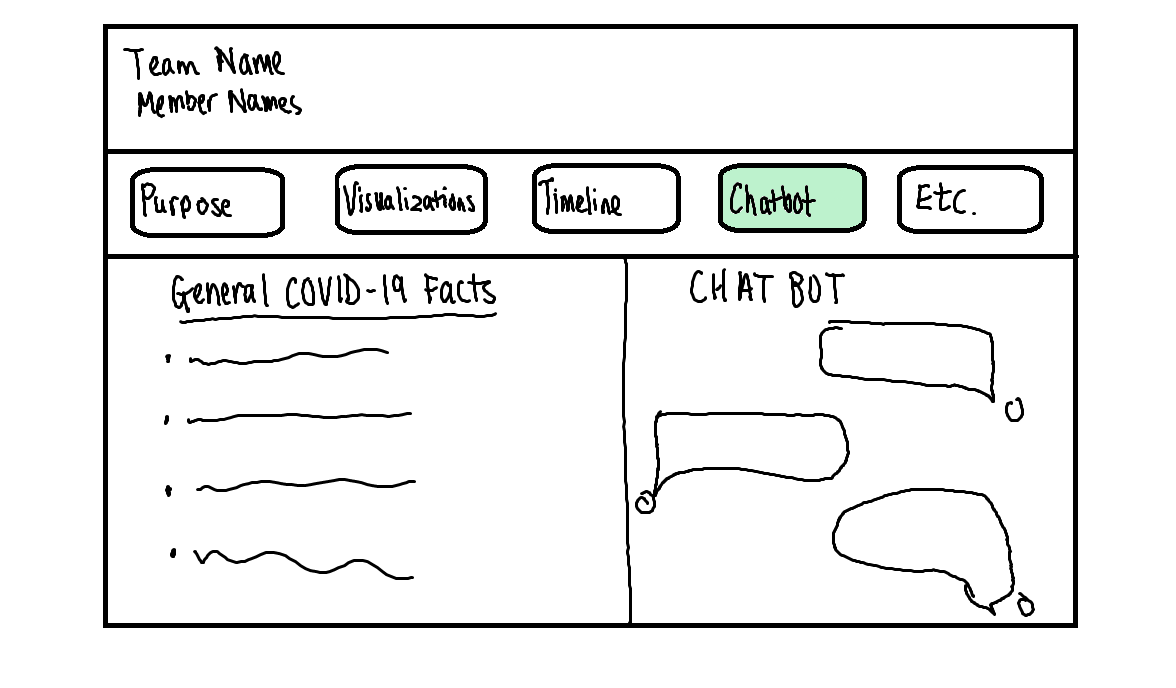 Team Name
Member Names
Purpose
Visualizations
Timeline
Chatbot
Etc.
General COVID-19 Facts
CHAT BOT